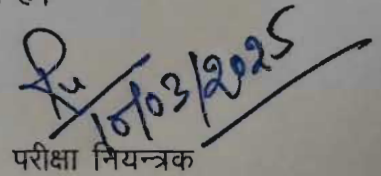 10/03/2025
परीक्षा नियन्त्रक